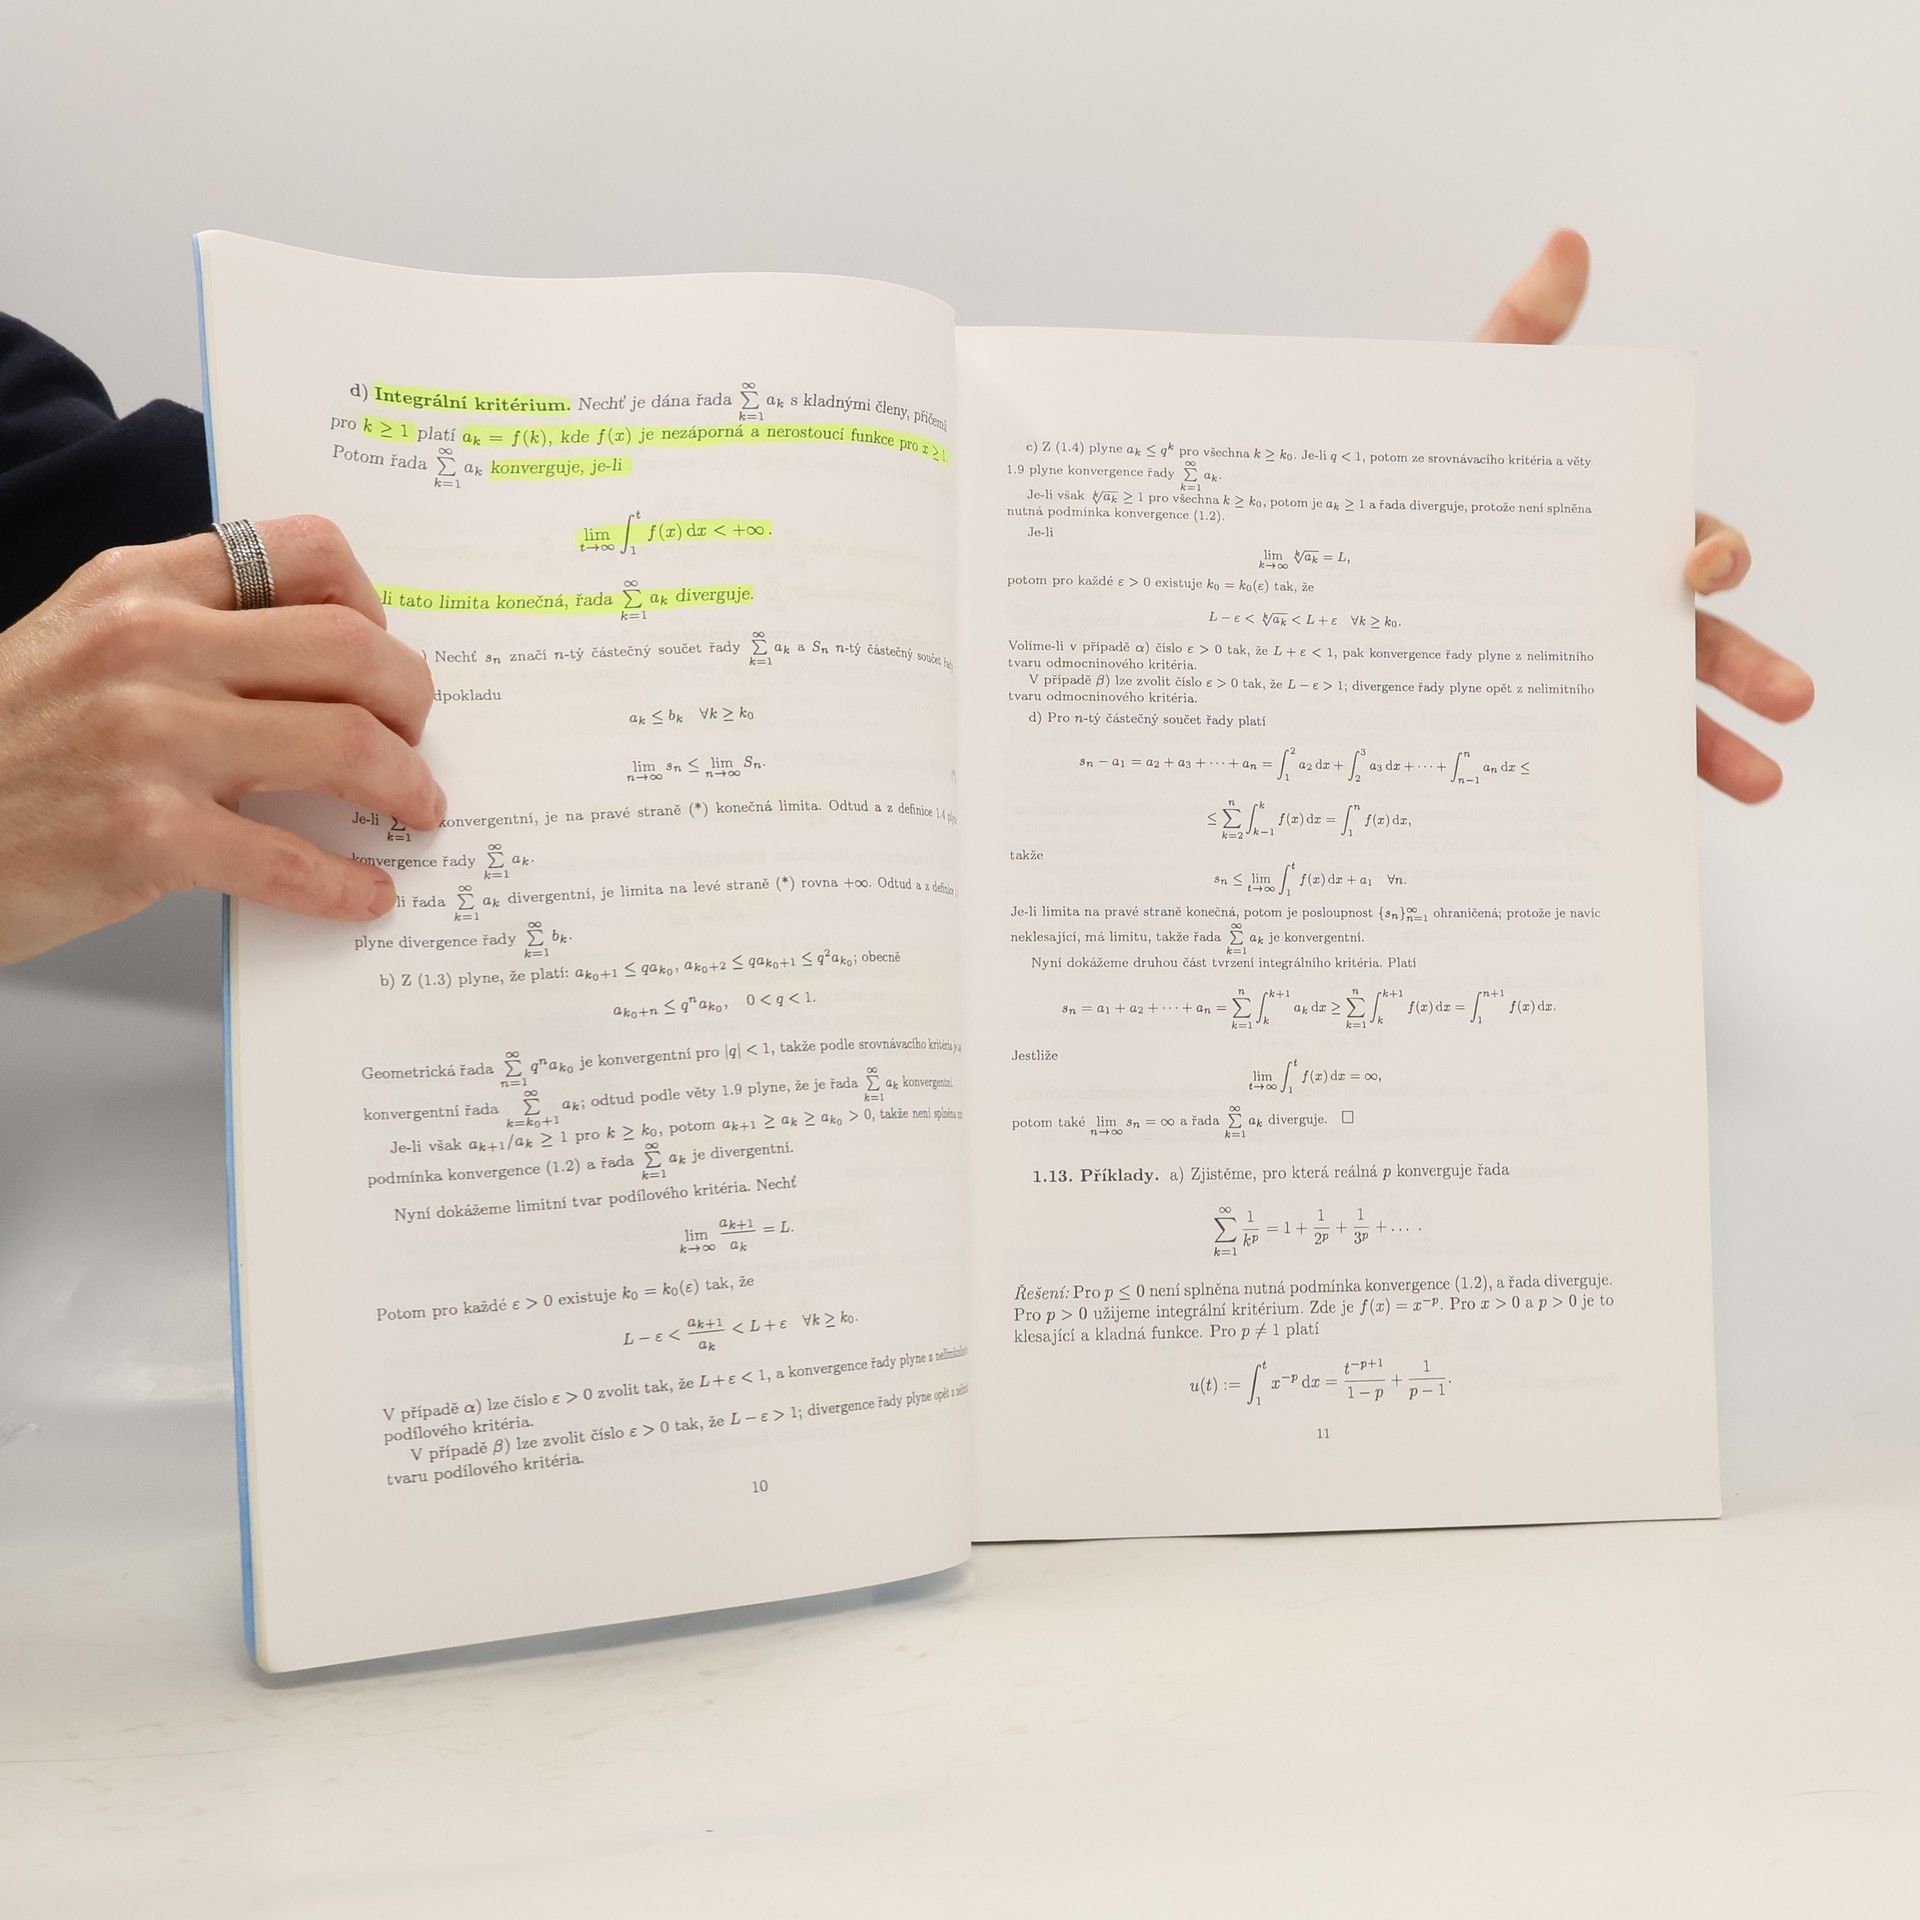 d) Integrální kritérium. Nechť je dána řada ∑_{k=1}^{∞} a_k s kladnými členy, přičemž
pro k ≥ 1 platí a_k = f(k), kde f(x) je nezáporná a nerostoucí funkce pro x ≥ 1.
Potom řada ∑_{k=1}^{∞} a_k konverguje, je-li
lim_{t→∞} ∫_1^t f(x) dx < +∞.
li tato limita konečná, řada ∑_{k=1}^{∞} a_k diverguje.
) Nechť s_n značí n-tý částečný součet řady ∑_{k=1}^{∞} a_k a S_n n-tý částečný součet řady
dpokladu
a_k ≤ b_k ∀k ≥ k_0
lim_{n→∞} s_n ≤ lim_{n→∞} S_n.
Je-li ∑_{k=1} konvergentní, je na pravé straně (*) konečná limita. Odtud a z definice 1.4
konvergence řady ∑_{k=1}^{∞} a_k.
li řada ∑_{k=1}^{∞} a_k divergentní, je limita na levé straně (*) rovna +∞. Odtud a z definice
plyne divergence řady ∑_{k=1}^{∞} b_k.
b) Z (1.3) plyne, že platí: a_{k_0+1} ≤ qa_{k_0}, a_{k_0+2} ≤ qa_{k_0+1} ≤ q^2a_{k_0}; obecně
a_{k_0+n} ≤ q^n a_{k_0}, 0 < q < 1.
Geometrická řada ∑_{n=1}^{∞} q^n a_{k_0} je konvergentní pro |q| < 1, takže podle srovnávacího kritéria
konvergentní řada ∑_{k=k_0+1}^{∞} a_k; odtud podle věty 1.9 plyne, že je řada ∑_{k=1}^{∞} a_k konvergentní.
Je-li však a_{k+1}/a_k ≥ 1 pro k ≥ k_0, potom a_{k+1} ≥ a_k ≥ a_{k_0} > 0, takže není splněna
podmínka konvergence (1.2) a řada ∑_{k=1}^{∞} a_k je divergentní.
Nyní dokážeme limitní tvar podílového kritéria. Nechť
lim_{k→∞} a_{k+1}/a_k = L.
Potom pro každé ε > 0 existuje k_0 = k_0(ε) tak, že
L − ε < a_{k+1}/a_k < L + ε ∀k ≥ k_0.
V případě α) lze číslo ε > 0 zvolit tak, že L + ε < 1, a konvergence řady plyne z
podílového kritéria.
V případě β) lze zvolit číslo ε > 0 tak, že L − ε > 1; divergence řady plyne opět z
tvaru podílového kritéria.
10
c) Z (1.4) plyne a_k ≤ q^k pro všechna k ≥ k_0. Je-li q < 1, potom ze srovnávacího kritéria a věty
1.9 plyne konvergence řady ∑_{k=1}^{∞} a_k.
Je-li však \sqrt[k]{a_k} ≥ 1 pro všechna k ≥ k_0, potom je a_k ≥ 1 a řada diverguje, protože není splněna
nutná podmínka konvergence (1.2).
Je-li
lim_{k→∞} \sqrt[k]{a_k} = L,
potom pro každé ε > 0 existuje k_0 = k_0(ε) tak, že
L − ε < \sqrt[k]{a_k} < L + ε ∀k ≥ k_0.
Volíme-li v případě α) číslo ε > 0 tak, že L + ε < 1, pak konvergence řady plyne z nelimitního
tvaru odmocninového kritéria.
V případě β) lze zvolit číslo ε > 0 tak, že L − ε > 1; divergence řady plyne opět z nelimitního
tvaru odmocninového kritéria.
d) Pro n-tý částečný součet řady platí
s_n − a_1 = a_2 + a_3 + ··· + a_n = ∫_1^2 a_2 dx + ∫_2^3 a_3 dx + ··· + ∫_{n−1}^n a_n dx ≤
≤ ∑_{k=2}^{n} ∫_{k−1}^k f(x) dx = ∫_1^n f(x) dx,
takže
s_n ≤ lim_{t→∞} ∫_1^t f(x) dx + a_1 ∀n.
Je-li limita na pravé straně konečná, potom je posloupnost {s_n}_{n=1}^{∞} ohraničená; protože je navíc
neklesající, má limitu, takže řada ∑_{k=1}^{∞} a_k je konvergentní.
Nyní dokážeme druhou část tvrzení integrálního kritéria. Platí
s_n = a_1 + a_2 + ··· + a_n = ∑_{k=1}^{n} ∫_k^{k+1} a_k dx ≥ ∑_{k=1}^{n} ∫_k^{k+1} f(x) dx = ∫_1^{n+1} f(x) dx.
Jestliže
lim_{t→∞} ∫_1^t f(x) dx = ∞,
potom také lim_{n→∞} s_n = ∞ a řada ∑_{k=1}^{∞} a_k diverguje. □
1.13. Příklady. a) Zjistěme, pro která reálná p konverguje řada
∑_{k=1}^{∞} 1/k^p = 1 + 1/2^p + 1/3^p + ... .
Řešení: Pro p ≤ 0 není splněna nutná podmínka konvergence (1.2), a řada diverguje.
Pro p > 0 užijeme integrální kritérium. Zde je f(x) = x^{−p}. Pro x > 0 a p > 0 je to
klesající a kladná funkce. Pro p ≠ 1 platí
u(t) := ∫_1^t x^{−p} dx = t^{−p+1}/(1 − p) + 1/(p − 1).
11